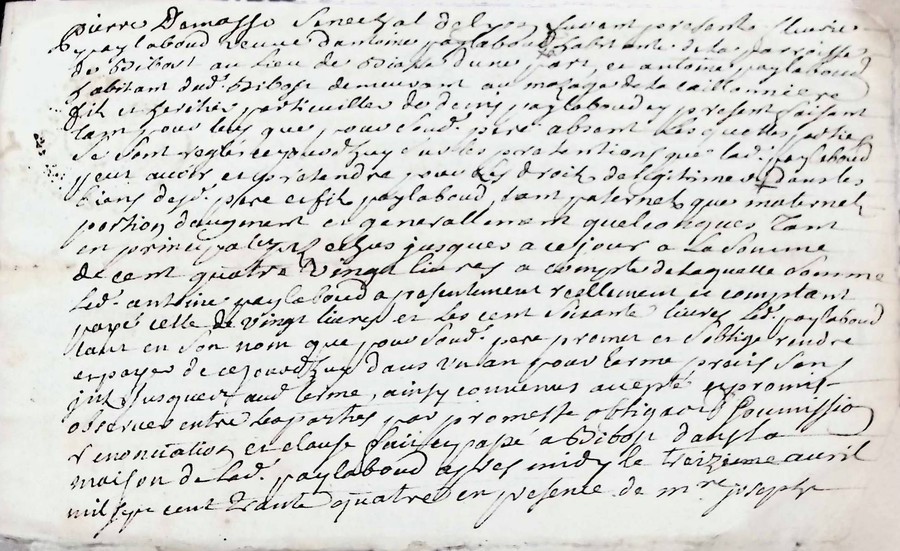 pierre Damasse Senechal de lyon suivant presente
paylaboud veuve d'antoine paylaboud habitante de la parroisse
de Bibost au lieu de d'une part, et antoine paylaboud
habitant dud. Bibost demeurant au mazage de la caillonniere
fils et heritier de denis paylaboud y present faisant
tant pour luy que pour Sond. pere absent lesquelles parties
se sont reglés ce jourd'huy sur les pretentions que lad. paylaboud
peut avoir et pretendre pour ses droits de legitime dans les
biens desd. pere et fils paylaboud, tant paternels que maternels
portion d'augment et generallement quelconques tant
en principal jusques a ce jour a la somme
de cent quatre vingt livres a compte de laquelle somme
led. antoine paylaboud a presentement reellement et comptant
payé celle de vingt livres et les cent soixante livres led. paylaboud
tant en son nom que pour Sond. pere promet et s'oblige rendre
et payer de ce jourd'huy dans un an pour terme precis sans
jusques aud. terme, ainsy convenus accepté et promis
observer entre les parties par promesse obligaõn Soumission
renonciation et clause fait et passé a Bibost dans la
maison de lad. paylaboud apres midy le treizieme avril
mil sept cent trante quatre en presence de mre joseph